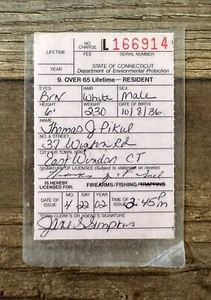 LIFETIME
NO CHARGE
L 166914
YEAR
FEE
STATE OF CONNECTICUT
Department of Environmental Protection
9. OVER 65 Lifetime-- RESIDENT
EYES HAIR SEX
BrN White Male
HEIGHT WEIGHT DATE OF BIRTH
6' 230 10/8/36
NAME
Thomas J Pikul
NO. & STREET
CITY OR TOWN, STATE
East Windsor CT
SIGNATURE OF LICENSEE (Subject to statement on reverse)
IS HEREBY LICENSED FOR: FIREARMS/FISHING/TRAPPING
DATE OF ISSUE MO. DAY YEAR TIME
4 22 02 2:45 PM
TOWN CLERK'S OR AGENT'S SIGNATURE